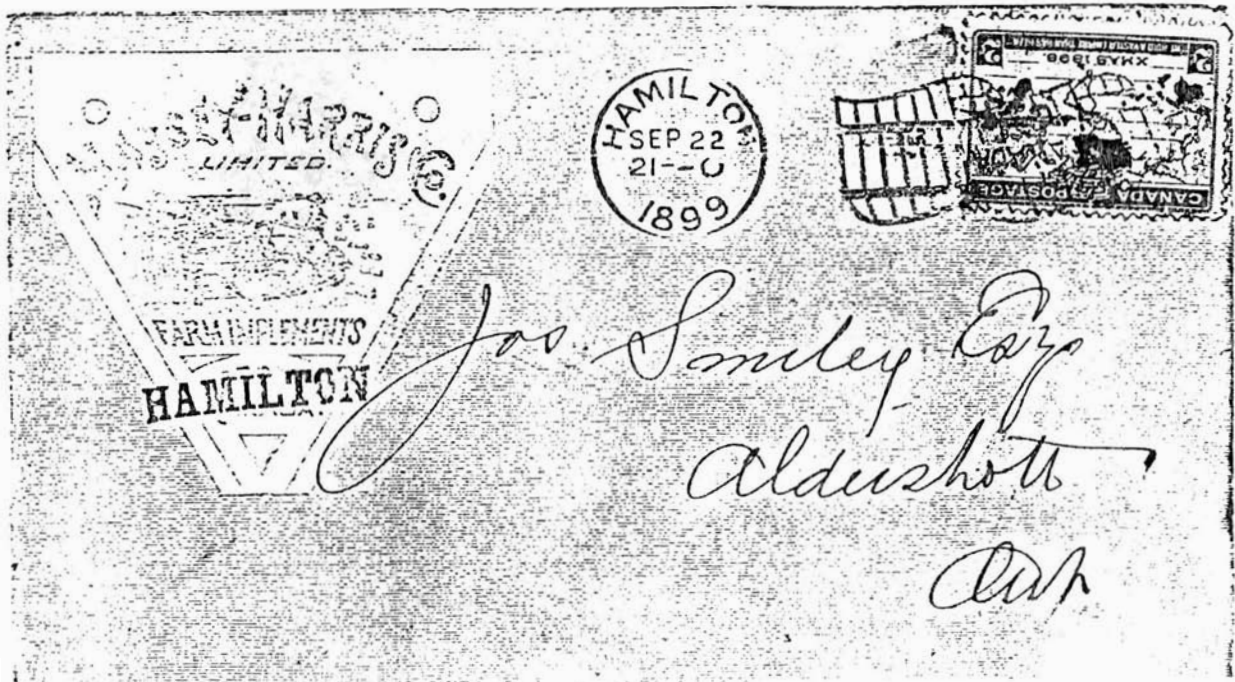 MASSEY-HARRIS Co.
LIMITED.
FARM IMPLEMENTS
HAMILTON
HAMILTON
SEP 22
21--0
1899
CANADA POSTAGE
XMAS 1898
2 2
Jos Smiley Esq
Aldershott
Ont